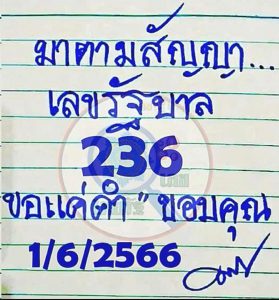 มาตามสัญญา...
เลขรัฐบาล
236
ขอแค่คำ " ขอบคุณ
1/6/2566